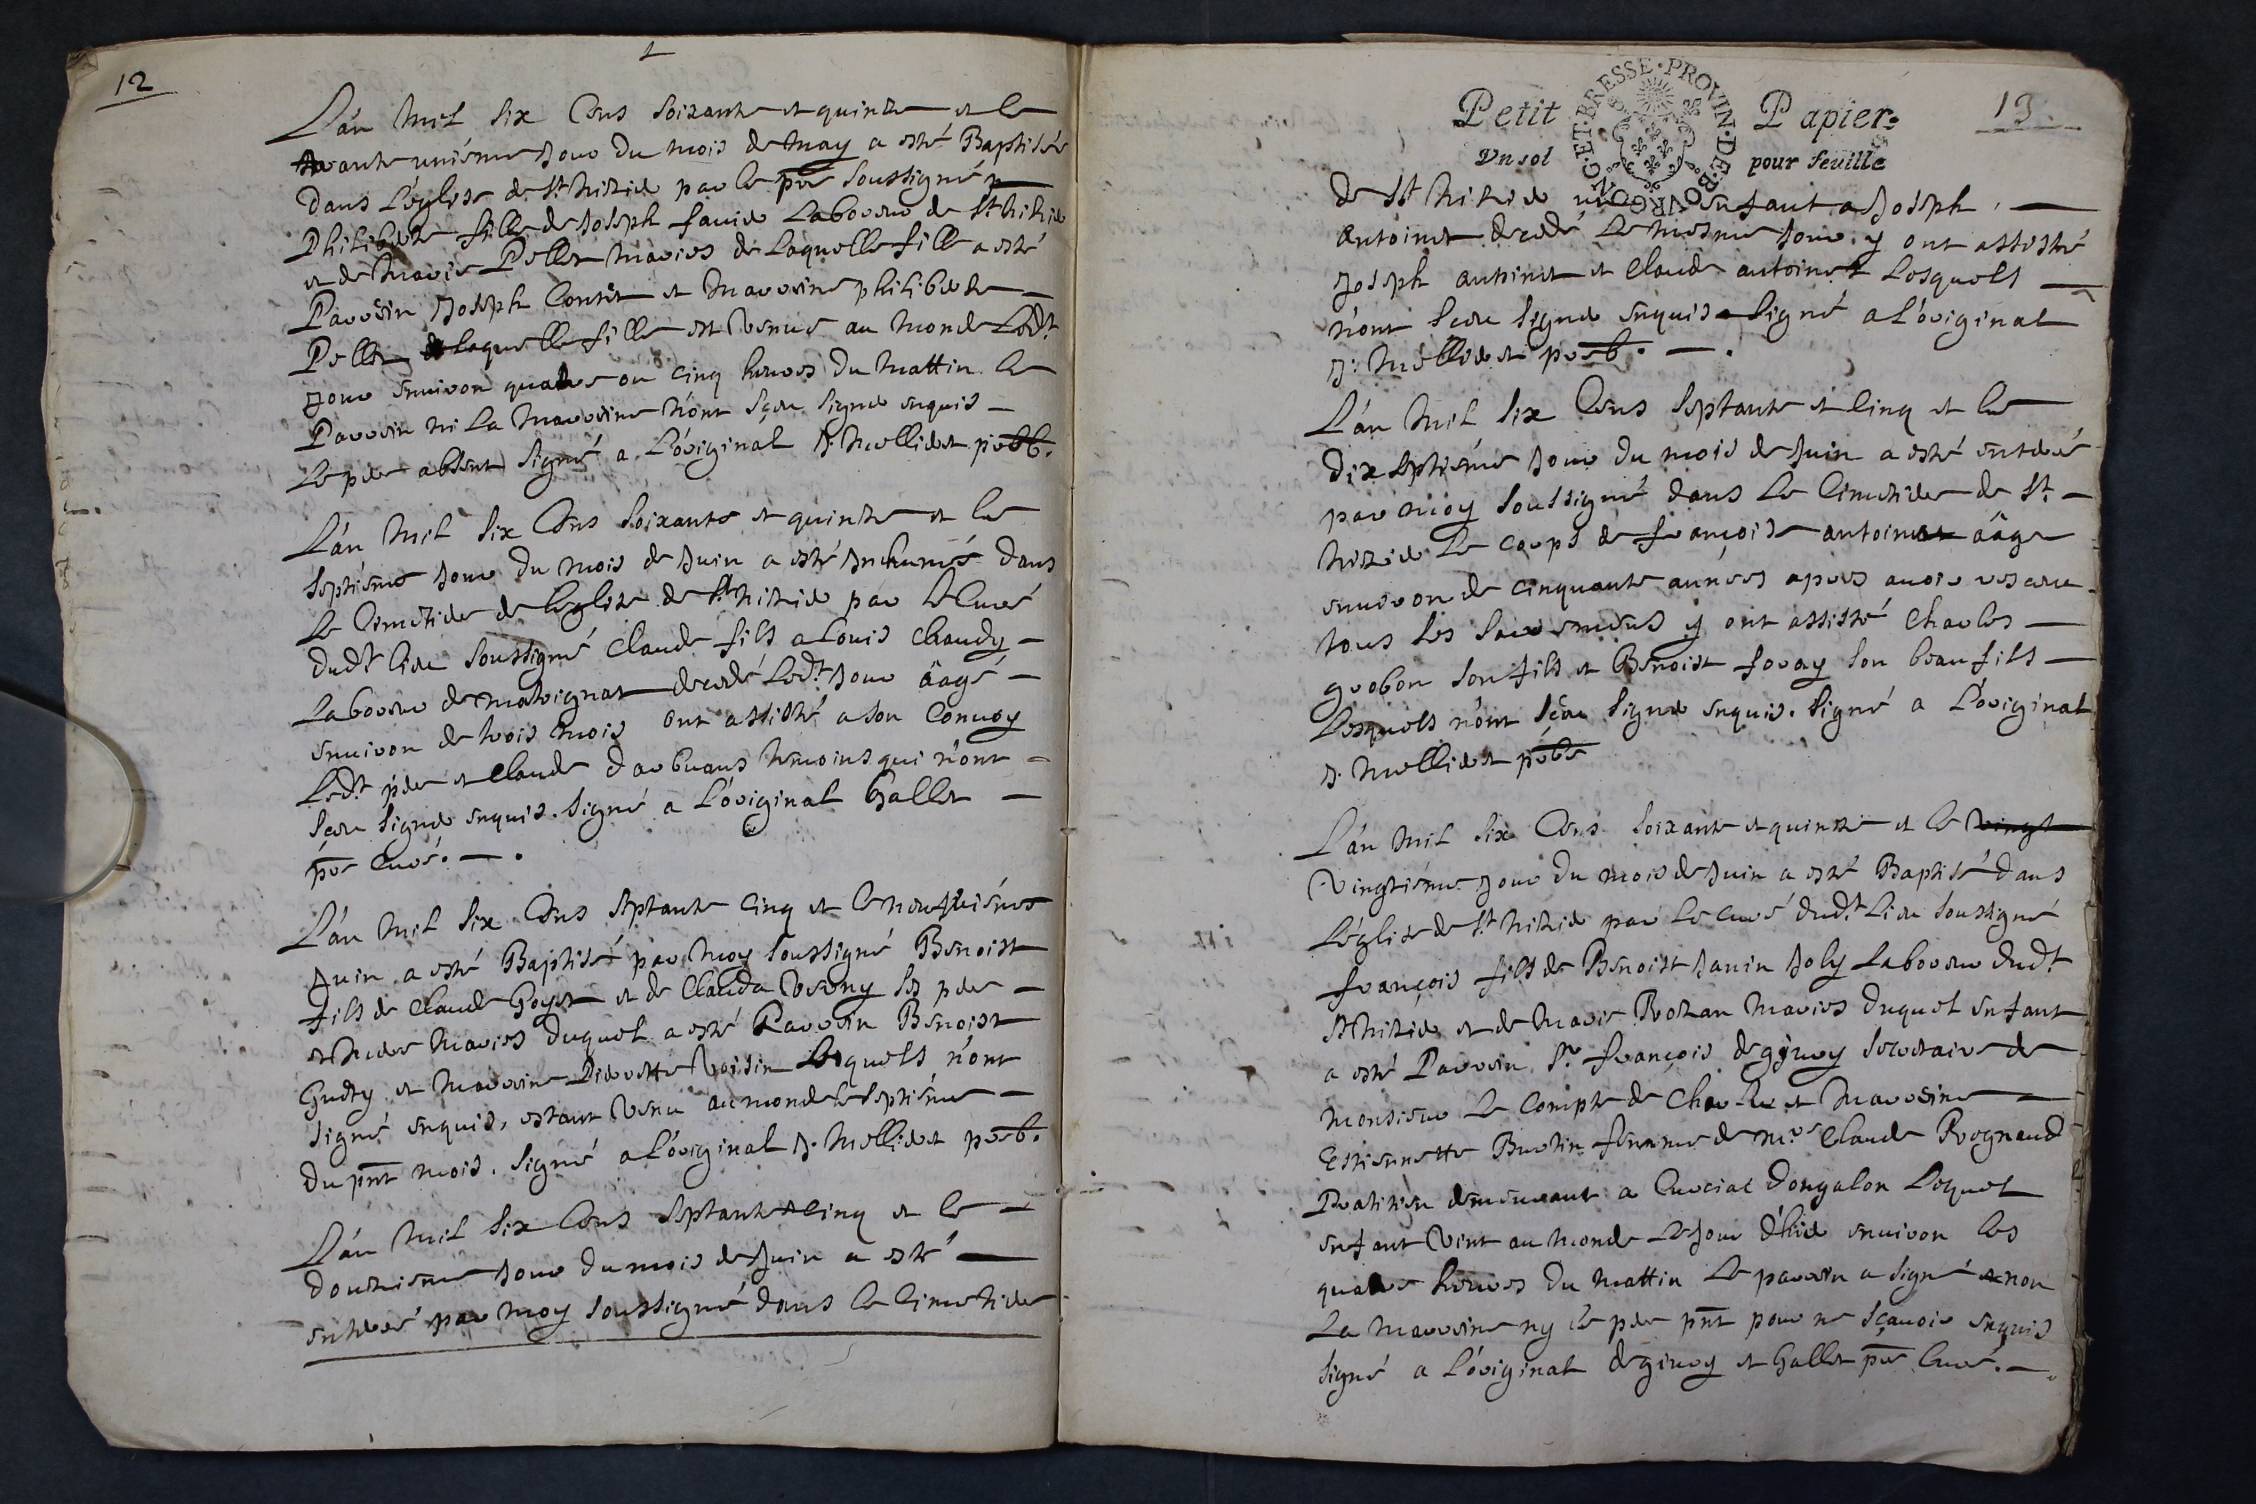 12
L'an mil six Cens soixante et quinze et le
trante uniéme jour du mois de may a esté Baptisée
dans L'église de St nizier par le pbre soussigné
Philiberte fille de Joseph favier Laboureur de St nizier
et de Marie Pellet mariés de Laquelle fille a esté
Parrain Joseph Contet et Marraine philiberte
Pellet Laquelle fille est venue au monde Ledt
jour environ quatre ou cinq heures du mattin le
Parrain ni La marraine n'ont sçeu signer enquis
Le pere absent signé a L'original J. Mellieret pbb.
L'an mil six Cens soixante et quinze et le
septiéme jour du mois de juin a esté inhumé dans
Le cimetiere de leglise de St nizier par le Curé
dudt lieu soussigné Claude fils a Louis Chaudy
Laboureur de decedé Ledt jour äagé
environ de trois mois ont assisté a son Convoy
Ledt pere et Claude temoins qui n'ont
sçeu signer enquis. signé a L'original Gallet
pbre Curé.
L'an mil six Cens septante cinq et le neufviéme
Juin a esté Baptisé par moy soussigné Benoist
fils de Claude Goyet et de Clauda Verny ses pere
et mere mariés duquel a esté Parrain Benoist
Gudry et marraine Pierrette Voisin Lesquels n'ont
signé enquis, estant venu au monde le septiéme
du pnt mois. signé a L'original J. Mellieret presb.
L'an mil six Cens septante et cinq et le
douziesme jour du mois de Juin a esté
enterré par moy soussigné dans le cimetiere
Petit Papier
13
Vn sol pour feuille
BOVRG. ET. BRESSE. PROVIN. DE.
de St nizier un enfant a Joseph
antoinet decedé Le mesme jour. y ont assisté
Joseph antoinet et Claude antoinet Lesquels
n'ont sceu signer enquis signé a L'original
J. Mellieret presb.
L'an mil six Cens septante et Cinq et le
dix septiéme jour du mois de Juin a esté enterré
par moy soussigné dans Le Cimetiere de St
nizier Le corps de françoise antoinet äage
environ de cinquante années apres avoir receue
tous les sacremens y ont assisté Charles
grobon son fils et Benoist foray son beau fils
Lesquels n'ont sçeu signer enquis. signé a L'original
J. Mellieret pbre
L'an mil six Cens soixante et quinze et le vingt
vingtiéme jour du mois de juin a esté Baptisé dans
L'église de St nizier par Le curé dudt Lieu soussigné
françois fils de Benoist Janin Joly Laboureur dudt
St nizier et de Marie Rozan mariés duquel enfant
a esté Parrain Sr françois degirey secretaire de
monsieur Le Compte de et marraine
Estiennette Burtin femme de mre Claude Rognard
Pratitien demeurant a Cruciat Dongalon Lequel
enfant vint au monde Le jour d'hier environ les
quatre heures du mattin Le parrin a signé et non
La marraine ny le pere pnt pour ne sçavoir enquis
signé a L'original degirey et Gallet pbre Curé.